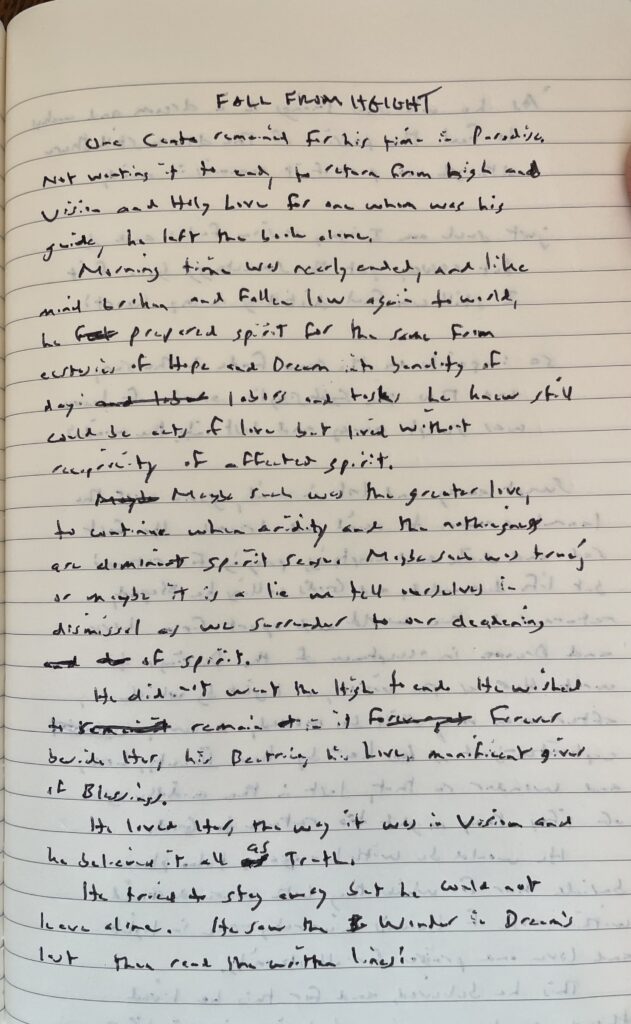 FALL FROM HEIGHT
One Canto remained for his time in Paradise.
Not wanting it to end, to return from high and
Vision and Holy Love for one whom was his
guide, he left the book alone.
Morning time was nearly ended, and like
mind broken and fallen low again to world,
he prepared spirit for the same from
ecstasies of Hope and Dream into banality of
day: labors and tasks he knew still
could be acts of love but lived without
reciprocity of affected spirit.
Maybe such was the greater love,
to continue when aridity and the nothingness
are dominant spirit sense. Maybe such was true,
or maybe it is a lie we tell ourselves in
dismissal as we surrender to our deadening
of spirit.
He did not want the High to end. He wished
to remain in it forever
beside Her, his Beatrice, his Love, magnificent giver
of Blessings.
He loved Her, the way it was in Vision and
he believed it all as Truth.
He tried to stay away but he could not
leave alone. He saw the Wonder in Dream's
last then read the written lines: